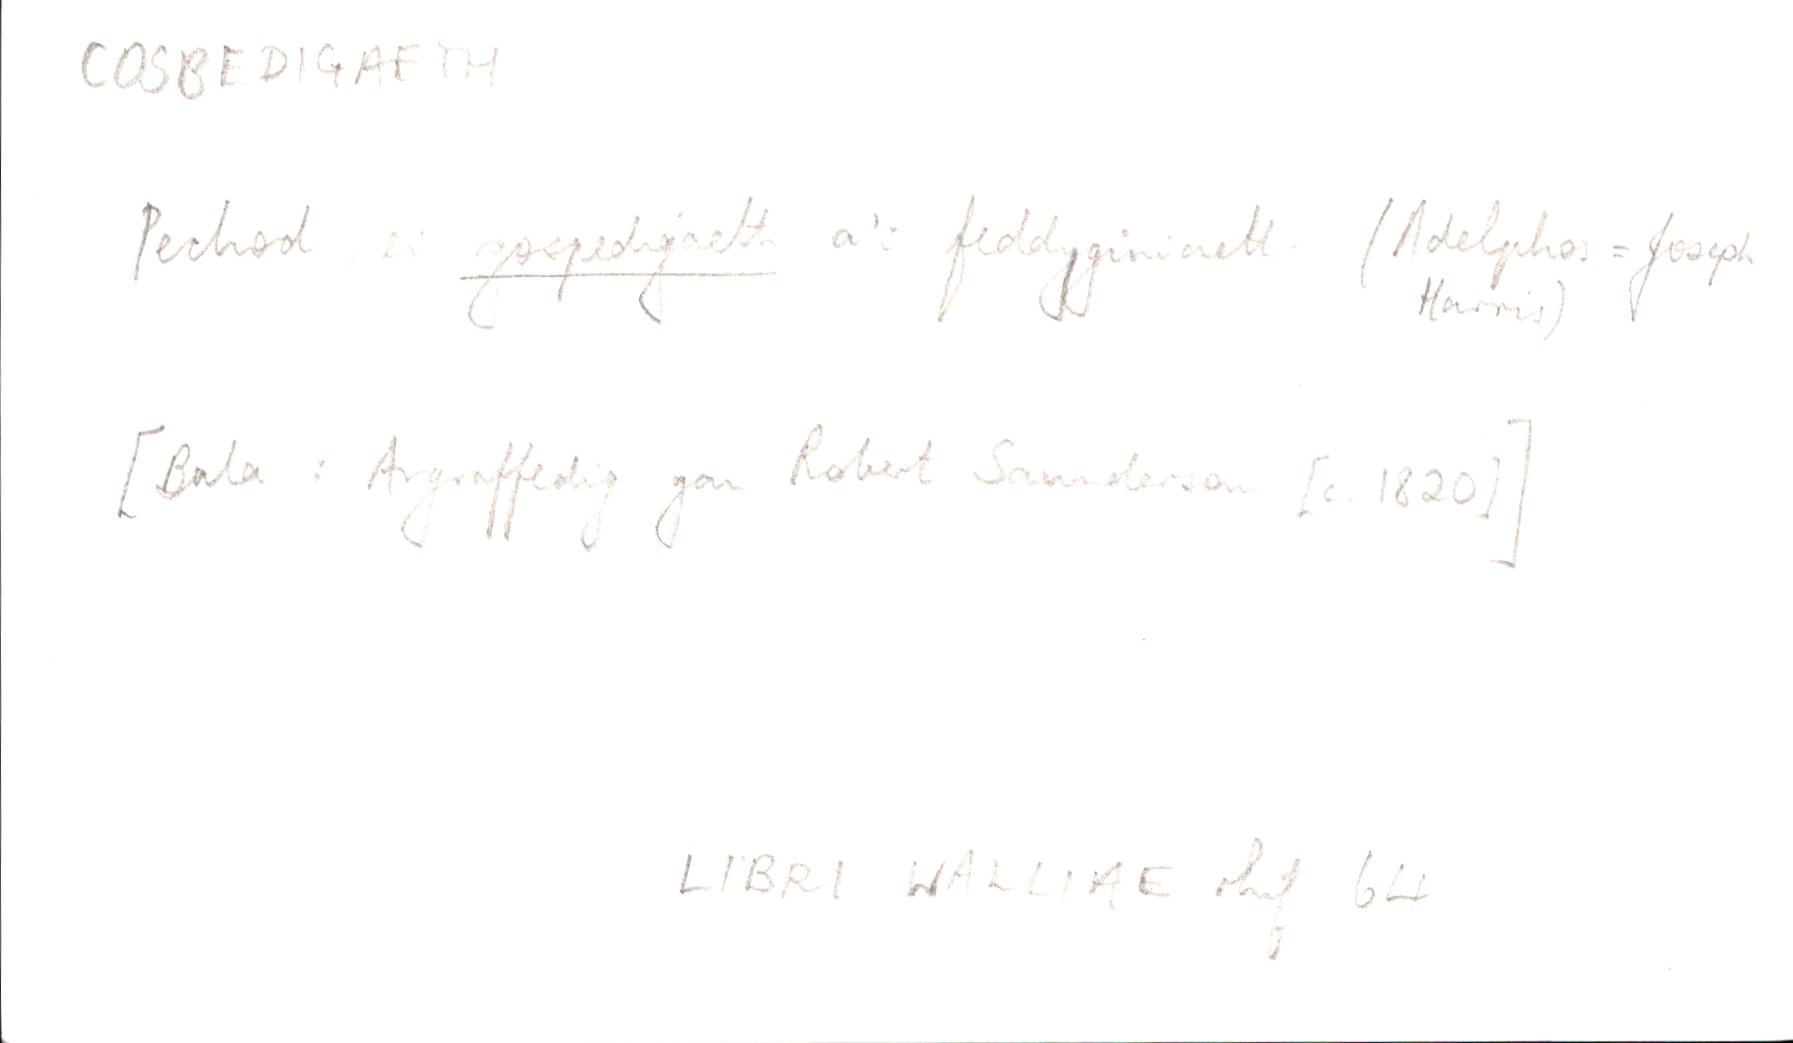 COSBEDIGAETH
Pechod, ei gospedigaeth a'i feddyginiaeth. (Adelphos = Joseph
Harris)
[Bala : Argraffedig gan Robert Saunderson [c. 1820]]
LIBRI WALLIAE rhif 64